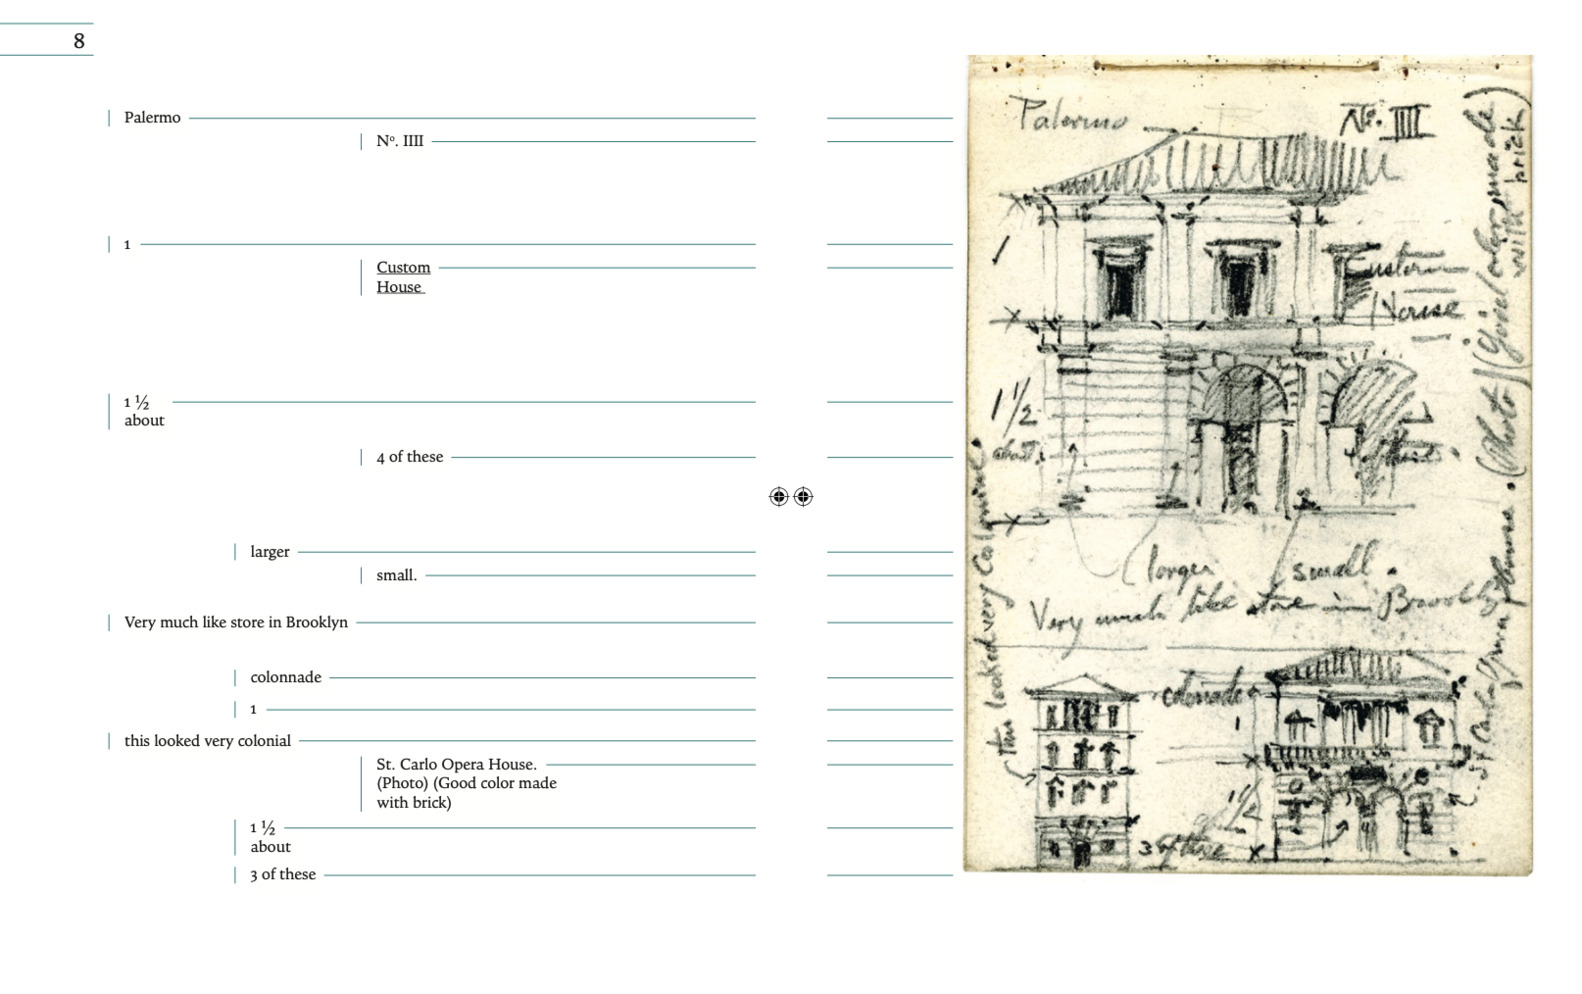 8
Palermo
Nº. IIII
1
Custom
House
1 ½
about
4 of these
larger
small.
Very much like store in Brooklyn
colonnade
1
this looked very colonial
St. Carlo Opera House.
(Photo) (Good color made
with brick)
1 ½
about
3 of these
Palermo
Nº. IIII
1
Custom
House
1 1/2
about
4 of these
larger
small.
Very much like store in Brooklyn
colonnade
1
this looked very Colonial
St Carlo Opera House. (Photo) (Good color made
with brick)
1 1/2
3 of these